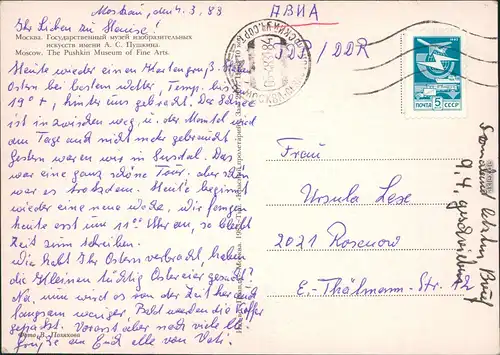 Moskau, den 4.3.83
АВИА
Ihr Lieben zu Hause!
Москва. Государственный музей изобразительных
искусств имени А. С. Пушкина.
Moscow. The Pushkin Museum of Fine Arts.
ГДР/DDR
ПОЧТА 5 СССР
Heute wieder einen Kartengruß.
Ostern bei bestem Wetter, Temp. bis
19°+, hinter uns gebracht. Der Schnee
ist inzwischen weg, u. der Mantel wird
am Tage auch nicht mehr gebraucht
Gestern waren wir in Susdal. Das
war eine ganz schöne Tour. aber schön
war es trotzdem. Heute beginnt
wieder eine neue Woche, wir fangen
heute erst um 11°° Uhr an, so bleibt
Zeit zum schreiben.
Wie habt Ihr Ostern verbracht, haben
die Kleinen tüchtig Ostereier gesucht?
Na, nun wird es von der Zeit her auch
langsam weniger. Bald werden die Koffer
gepackt. Vorerst aber noch viele lb.
Grüße an Euch alle von Vati.
Фото В. Полякова
Frau
Ursula Lese
2021 Rosenow
E.-Thälmann-Str. 12
Sonnabend letzten Brief
9.4. geschrieben